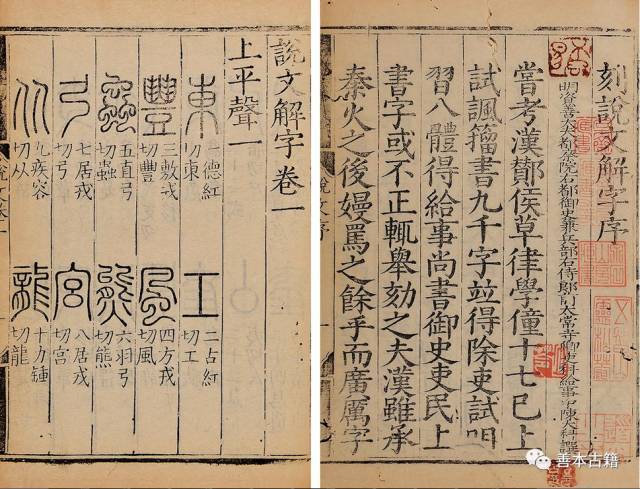 刻說文解字序
明資善大夫都察院右都御史兼兵部右侍郎前太常寺卿吏科給事中陳大科譔
嘗考漢酇侯草律學僮十七已上
試諷籀書九千字竝得除吏試㠯
習八體得給事尚書御史吏民上
書字或不正輒舉劾之夫漢雖承
秦火之後嫚罵之餘乎而廣厲字
說文序
說文解字卷一
上平聲一
東 一德紅切東 工 二古紅切工
豐 三敷戎切豐 風 四方戎切風
蟲 五直弓切蟲 熊 六羽弓切熊
弓 七居戎切弓 宮 八居戎切宮
从 九疾容切从 龍 十力鍾切龍
說文卷一
善本古籍